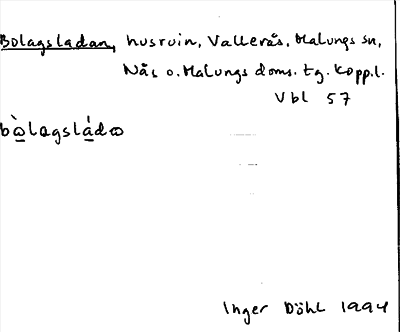 Bolagsladan, husruin, Vallerås, Malungs sn,
Nås o. Malungs doms. tg. Kopp.l.
Vbl 57
bòlagsládo
Inger Döhl 1994